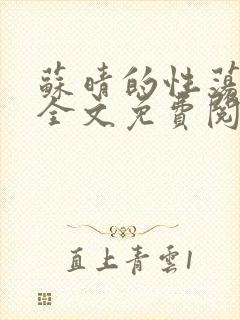 蘇晴的性蕩
全文免費閱
直上青雲1